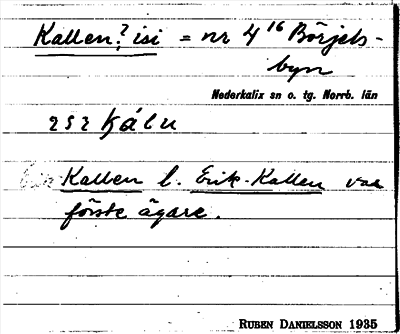 Kallen? isi = nr 4 16 Börjels-
byn
Nederkalix sn o. tg. Norrb. län
Kallen l. Erik-Kallen var
förste ägare.
RUBEN DANIELSSON 1935